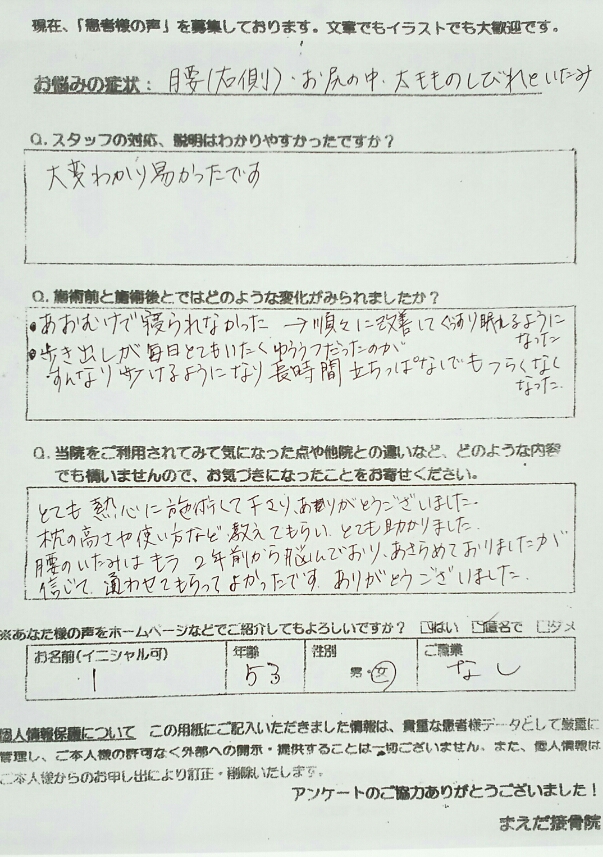 現在、「患者様の声」を募集しております。文章でもイラストでも大歓迎です。
お悩みの症状： 腰(右側)・お尻の中・太もものしびれといたみ
Q.スタッフの対応、説明はわかりやすかったですか？
大変わかり易かったです
Q.施術前と施術後とではどのような変化がみられましたか？
●あおむけで寝られなかった → 順々に改善してぐっすり眠れるように
なった
●歩き出しが毎日とてもいたくゆううつだったのが
すんなり歩けるようになり長時間立ちっぱなしでもつらくなく
なった.
Q.当院をご利用されてみて気になった点や他院との違いなど、どのような内容
でも構いませんので、お気づきになったことをお寄せください。
とても熱心に施術して下さり、ありがとうございました.
枕の高さや使い方など教えてもらい、とても助かりました.
腰のいたみはもう2年前から悩んでおり、あきらめておりましたが
信じて、通わせてもらってよかったです ありがとうございました.
※あなた様の声をホームページなどでご紹介してもよろしいですか？ □はい ☑匿名で □ダメ
お名前(イニシャル可) 年齢 性別 ご職業
I 53 男・女 なし
個人情報保護について この用紙にご記入いただきました情報は、貴重な患者様データとして厳重に
管理し、ご本人様の許可なく外部への開示・提供することは一切ございません。また、個人情報は
ご本人様からのお申し出により訂正・削除いたします。
アンケートのご協力ありがとうございました！
まえだ接骨院